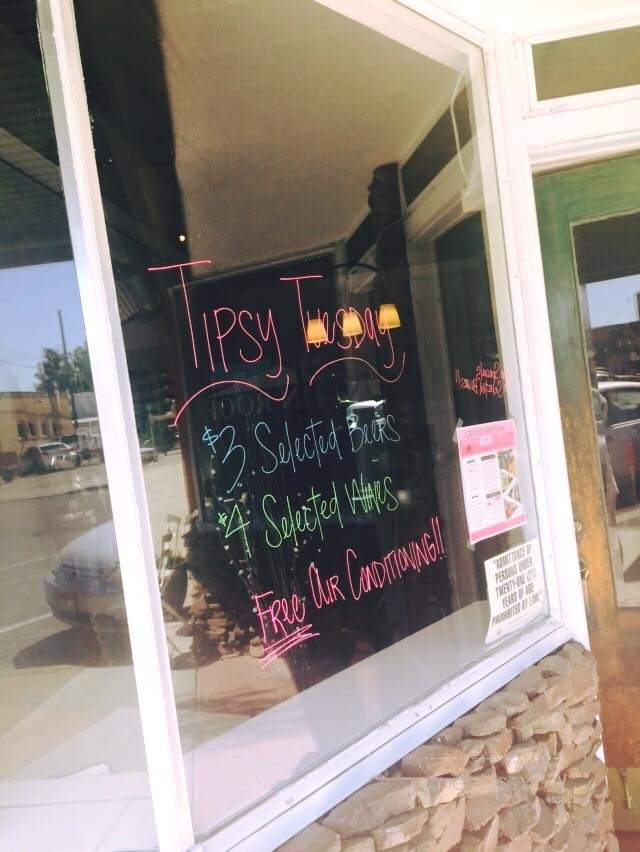 Tipsy Tuesday
$3. Selected Beers
$4 Selected Wines
Free Air Conditioning!!
"ADMITTANCE OF
PERSONS UNDER
TWENTY-ONE (21)
YEARS OF AGE
PROHIBITED BY LAW"